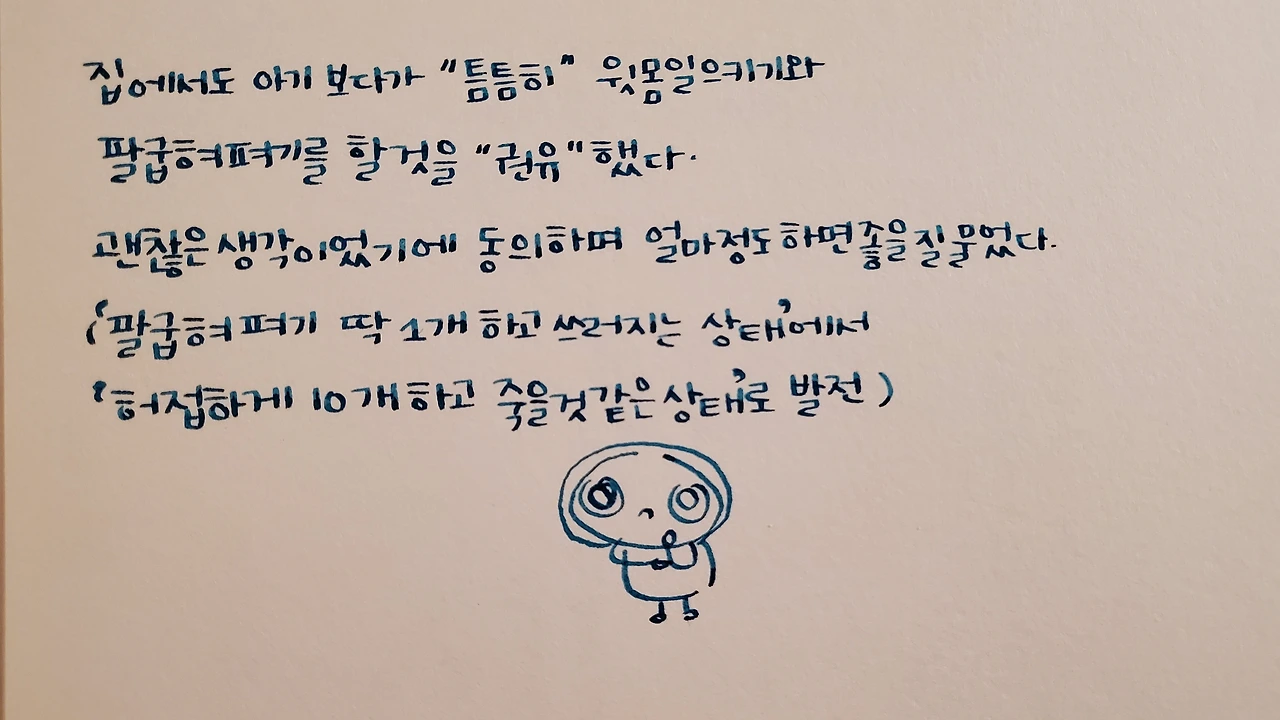 집에서도 아기 보다가 "틈틈히" 윗몸일으키기와
팔굽혀펴기를 할것을 "권유"했다.
괜찮은 생각이었기에 동의하며 얼마정도 하면 좋을질 물었다.
('팔굽혀펴기 딱 1개 하고 쓰러지는 상태'에서
'허접하게 10개 하고 죽을것같은 상태'로 발전)